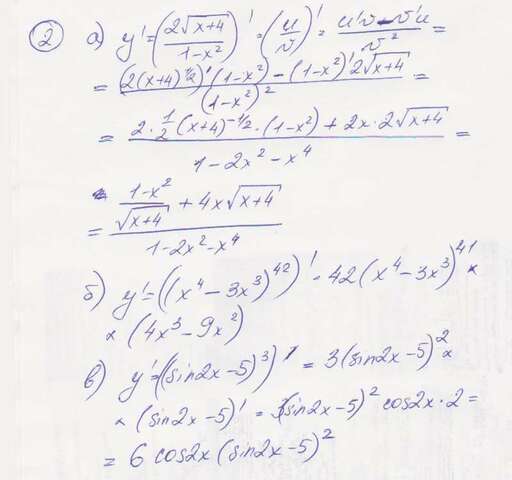 2 а) y' = (2√x+4 / 1-x²)' = (u/v)' = u'v - v'u / v² =
= (2(x+4)^1/2)' (1-x²) - (1-x²)' 2√x+4 / (1-x²)² =
= 2·1/2 (x+4)^-1/2 · (1-x²) + 2x·2√x+4 / 1-2x²-x⁴ =
= 1-x²/√x+4 + 4x√x+4 / 1-2x²-x⁴
б) y' = ((x⁴-3x³)^42)' = 42(x⁴-3x³)^41 ×
× (4x³-9x²)
в) y' = ((sin2x-5)³)' = 3(sin2x-5)² ×
× (sin2x-5)' = 3(sin2x-5)² cos2x·2 =
= 6 cos2x (sin2x-5)²